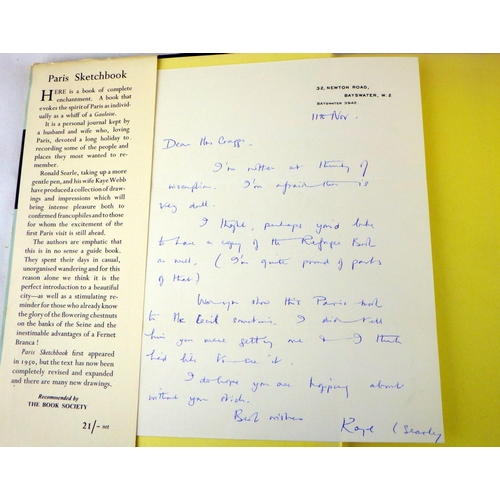 Paris Sketchbook
HERE is a book of complete
enchantment. A book that
evokes the spirit of Paris as individ-
ually as a whiff of a Gauloise.
It is a personal journal kept by
a husband and wife who, loving
Paris, devoted a long holiday to
recording some of the people and
places they most wanted to re-
member.
Ronald Searle, taking up a more
gentle pen, and his wife Kaye Webb
have produced a collection of draw-
ings and impressions which will
bring intense pleasure both to
confirmed francophiles and to those
for whom the excitement of the
first Paris visit is still ahead.
The authors are emphatic that
this is in no sense a guide book.
They spent their days in casual,
unorganised wandering and for this
reason alone we think it is the
perfect introduction to a beautiful
city—as well as a stimulating re-
minder for those who already know
the glory of the flowering chestnuts
on the banks of the Seine and the
inestimable advantages of a Fernet
Branca!
Paris Sketchbook first appeared
in 1950, but the text has now been
completely revised and expanded
and there are many new drawings.
Recommended by
THE BOOK SOCIETY
21/- net
32, NEWTON ROAD,
BAYSWATER, W.2
BAYSWATER 3942.
11th Nov.
Dear Mrs
I'm rather at
I'm afraid is
very dull.
I thought, perhaps you'd like
to have a copy of the Refugee Book
as well. (I'm quite proud of parts
of that)
you show this Paris book
to Mr Cecil sometime. I didn't tell
him you were getting one & I think
he'd like to see it.
I do hope you are hopping about
without your stick.
Best wishes
Kaye (Searle)